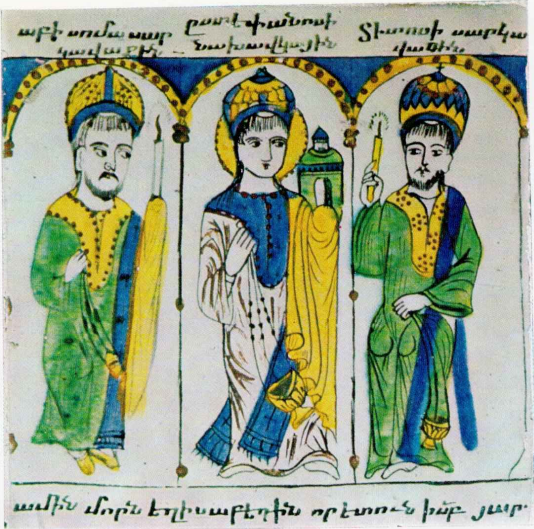 աբի սոմա սար
կաւաքին
ըստէփանոսի
նախավկային
Տիւոսի սարկա
վաքին
ամին մորն էղիսաբէդին որ էտուն իմբ յար